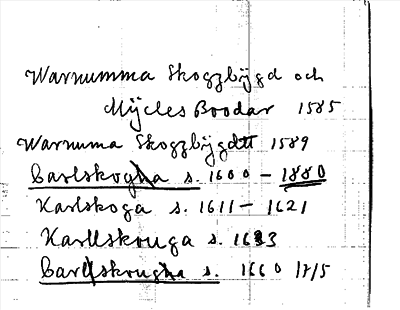 Warnumma Skogzbÿgd och
Mÿcles Boodar 1585
Warnuma Skogzbÿgdtt 1589
Carlskogha s. 1600 – 1880
Karlskoga s. 1611 – 1621
Karllskouga s. 1683
Carllskougha s. 1660 1715